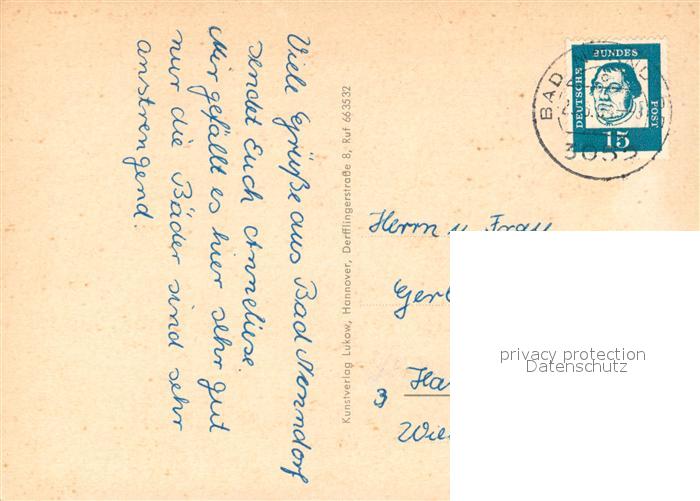 Viele Grüße aus Bad Nenndorf
sendet Euch Anneliese.
Mir gefällt es hier sehr gut
nur die Bäder sind sehr
anstrengend.
Kunstverlag Lukow, Hannover, Derfflingerstraße 8, Ruf 663532
DEUTSCHE
BUNDES
POST
15
BAD
3055
Herrn u. Frau
Gerl
3 Ha
privacy protection
Datenschutz